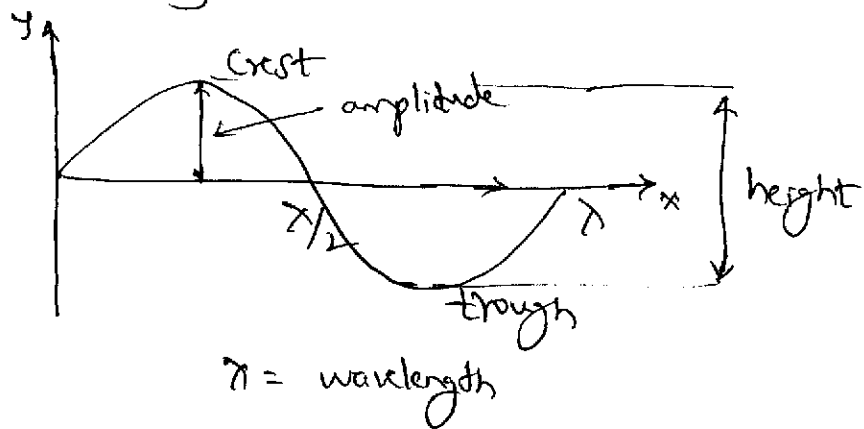 y
Crest
amplitude
height
x
λ/2
λ
trough
λ = wavelength